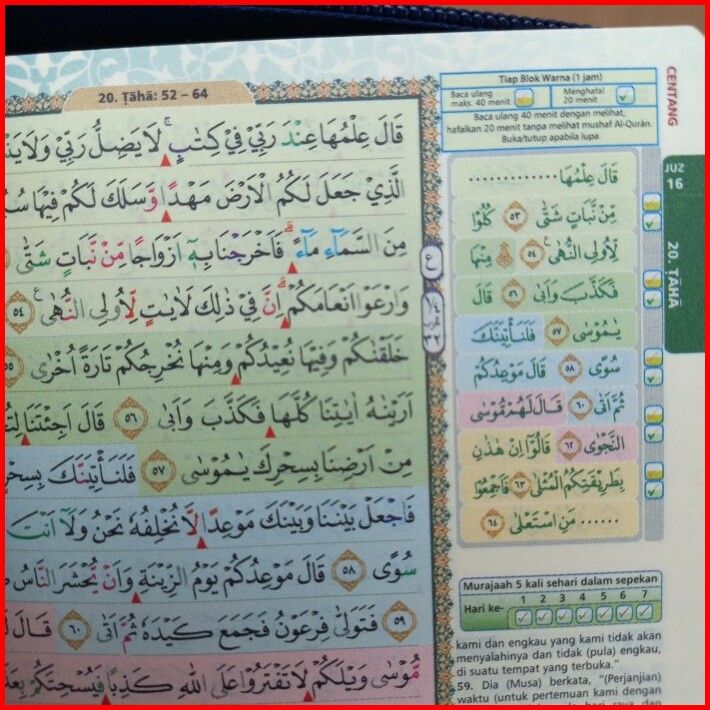 20. Ṭāhā: 52 – 64
قَالَ عِلْمُهَا عِنْدَ رَبِّيْ فِيْ كِتٰبٍۚ لَا يَضِلُّ رَبِّيْ وَلَا
الَّذِيْ جَعَلَ لَكُمُ الْاَرْضَ مَهْدًا وَّسَلَكَ لَكُمْ فِيْهَا
مِنَ السَّمَاۤءِ مَاۤءًۗ فَاَخْرَجْنَا بِهٖٓ اَزْوَاجًا مِّنْ نَّبَاتٍ شَتّٰى
وَارْعَوْا اَنْعَامَكُمْۗ اِنَّ فِيْ ذٰلِكَ لَاٰيٰتٍ لِّاُولِى النُّهٰىࣖ ٥٤
خَلَقْنٰكُمْ وَفِيْهَا نُعِيْدُكُمْ وَمِنْهَا نُخْرِجُكُمْ تَارَةً اُخْرٰى
اَرَيْنٰهُ اٰيٰتِنَا كُلَّهَا فَكَذَّبَ وَاَبٰى ٥٦ قَالَ اَجِئْتَنَا
مِنْ اَرْضِنَا بِسِحْرِكَ يٰمُوْسٰى ٥٧ فَلَنَأْتِيَنَّكَ
فَاجْعَلْ بَيْنَنَا وَبَيْنَكَ مَوْعِدًا لَّا نُخْلِفُهٗ نَحْنُ وَلَآ اَنْتَ
سُوًى ٥٨ قَالَ مَوْعِدُكُمْ يَوْمُ الزِّيْنَةِ وَاَنْ يُّحْشَرَ النَّاسُ
٥٩ فَتَوَلّٰى فِرْعَوْنُ فَجَمَعَ كَيْدَهٗ ثُمَّ اَتٰى ٦٠ قَالَ
مُّوْسٰى وَيْلَكُمْ لَا تَفْتَرُوْا عَلَى اللّٰهِ كَذِبًا فَيُسْحِتَكُمْ
ع
١٤
٣٢
Tiap Blok Warna (1 jam)
Baca ulang maks. 40 menit
Menghafal 20 menit
Baca ulang 40 menit dengan melihat,
hafalkan 20 menit tanpa melihat mushaf Al-Qurán.
Buka/tutup apabila lupa.
قَالَ عِلْمُهَا.............
مِّنْ نَّبَاتٍ شَتّٰى ٥٣ كُلُوْا
لِّاُولِى النُّهٰىࣖ ٥٤ مِنْهَا
فَكَذَّبَ وَاَبٰى ٥٦ قَالَ
يٰمُوْسٰى ٥٧ فَلَنَأْتِيَنَّكَ
سُوًى ٥٨ قَالَ مَوْعِدُكُمْ
ثُمَّ اَتٰى ٦٠ قَالَ لَهُمْ مُّوْسٰى
النَّجْوٰى ٦٢ قَالُوْٓا اِنْ هٰذٰنِ
بِطَرِيْقَتِكُمُ الْمُثْلٰى ٦٣ فَاَجْمِعُوْا
...... مَنِ اسْتَعْلٰى ٦٤
CENTANG
JUZ
16
20. ṬĀHĀ
Murajaah 5 kali sehari dalam sepekan
Hari ke- 1 2 3 4 5 6 7
kami dan engkau yang kami tidak akan
menyalahinya dan tidak (pula) engkau,
di suatu tempat yang terbuka."
59. Dia (Musa) berkata, "(Perjanjian)
waktu (untuk pertemuan kami dengan